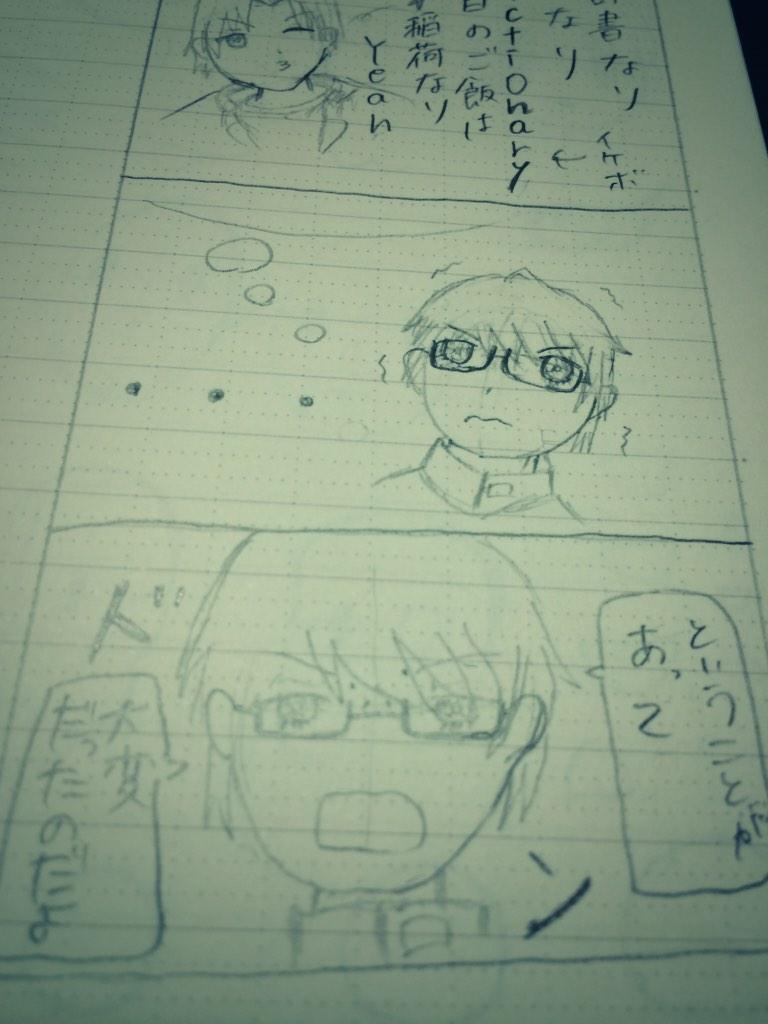 書なり
イケボ
←
なり
ctionary
日のご飯は
稲荷なり
Yeah
・・・
ということが
あって
ド
ン
大変
だったのだよ